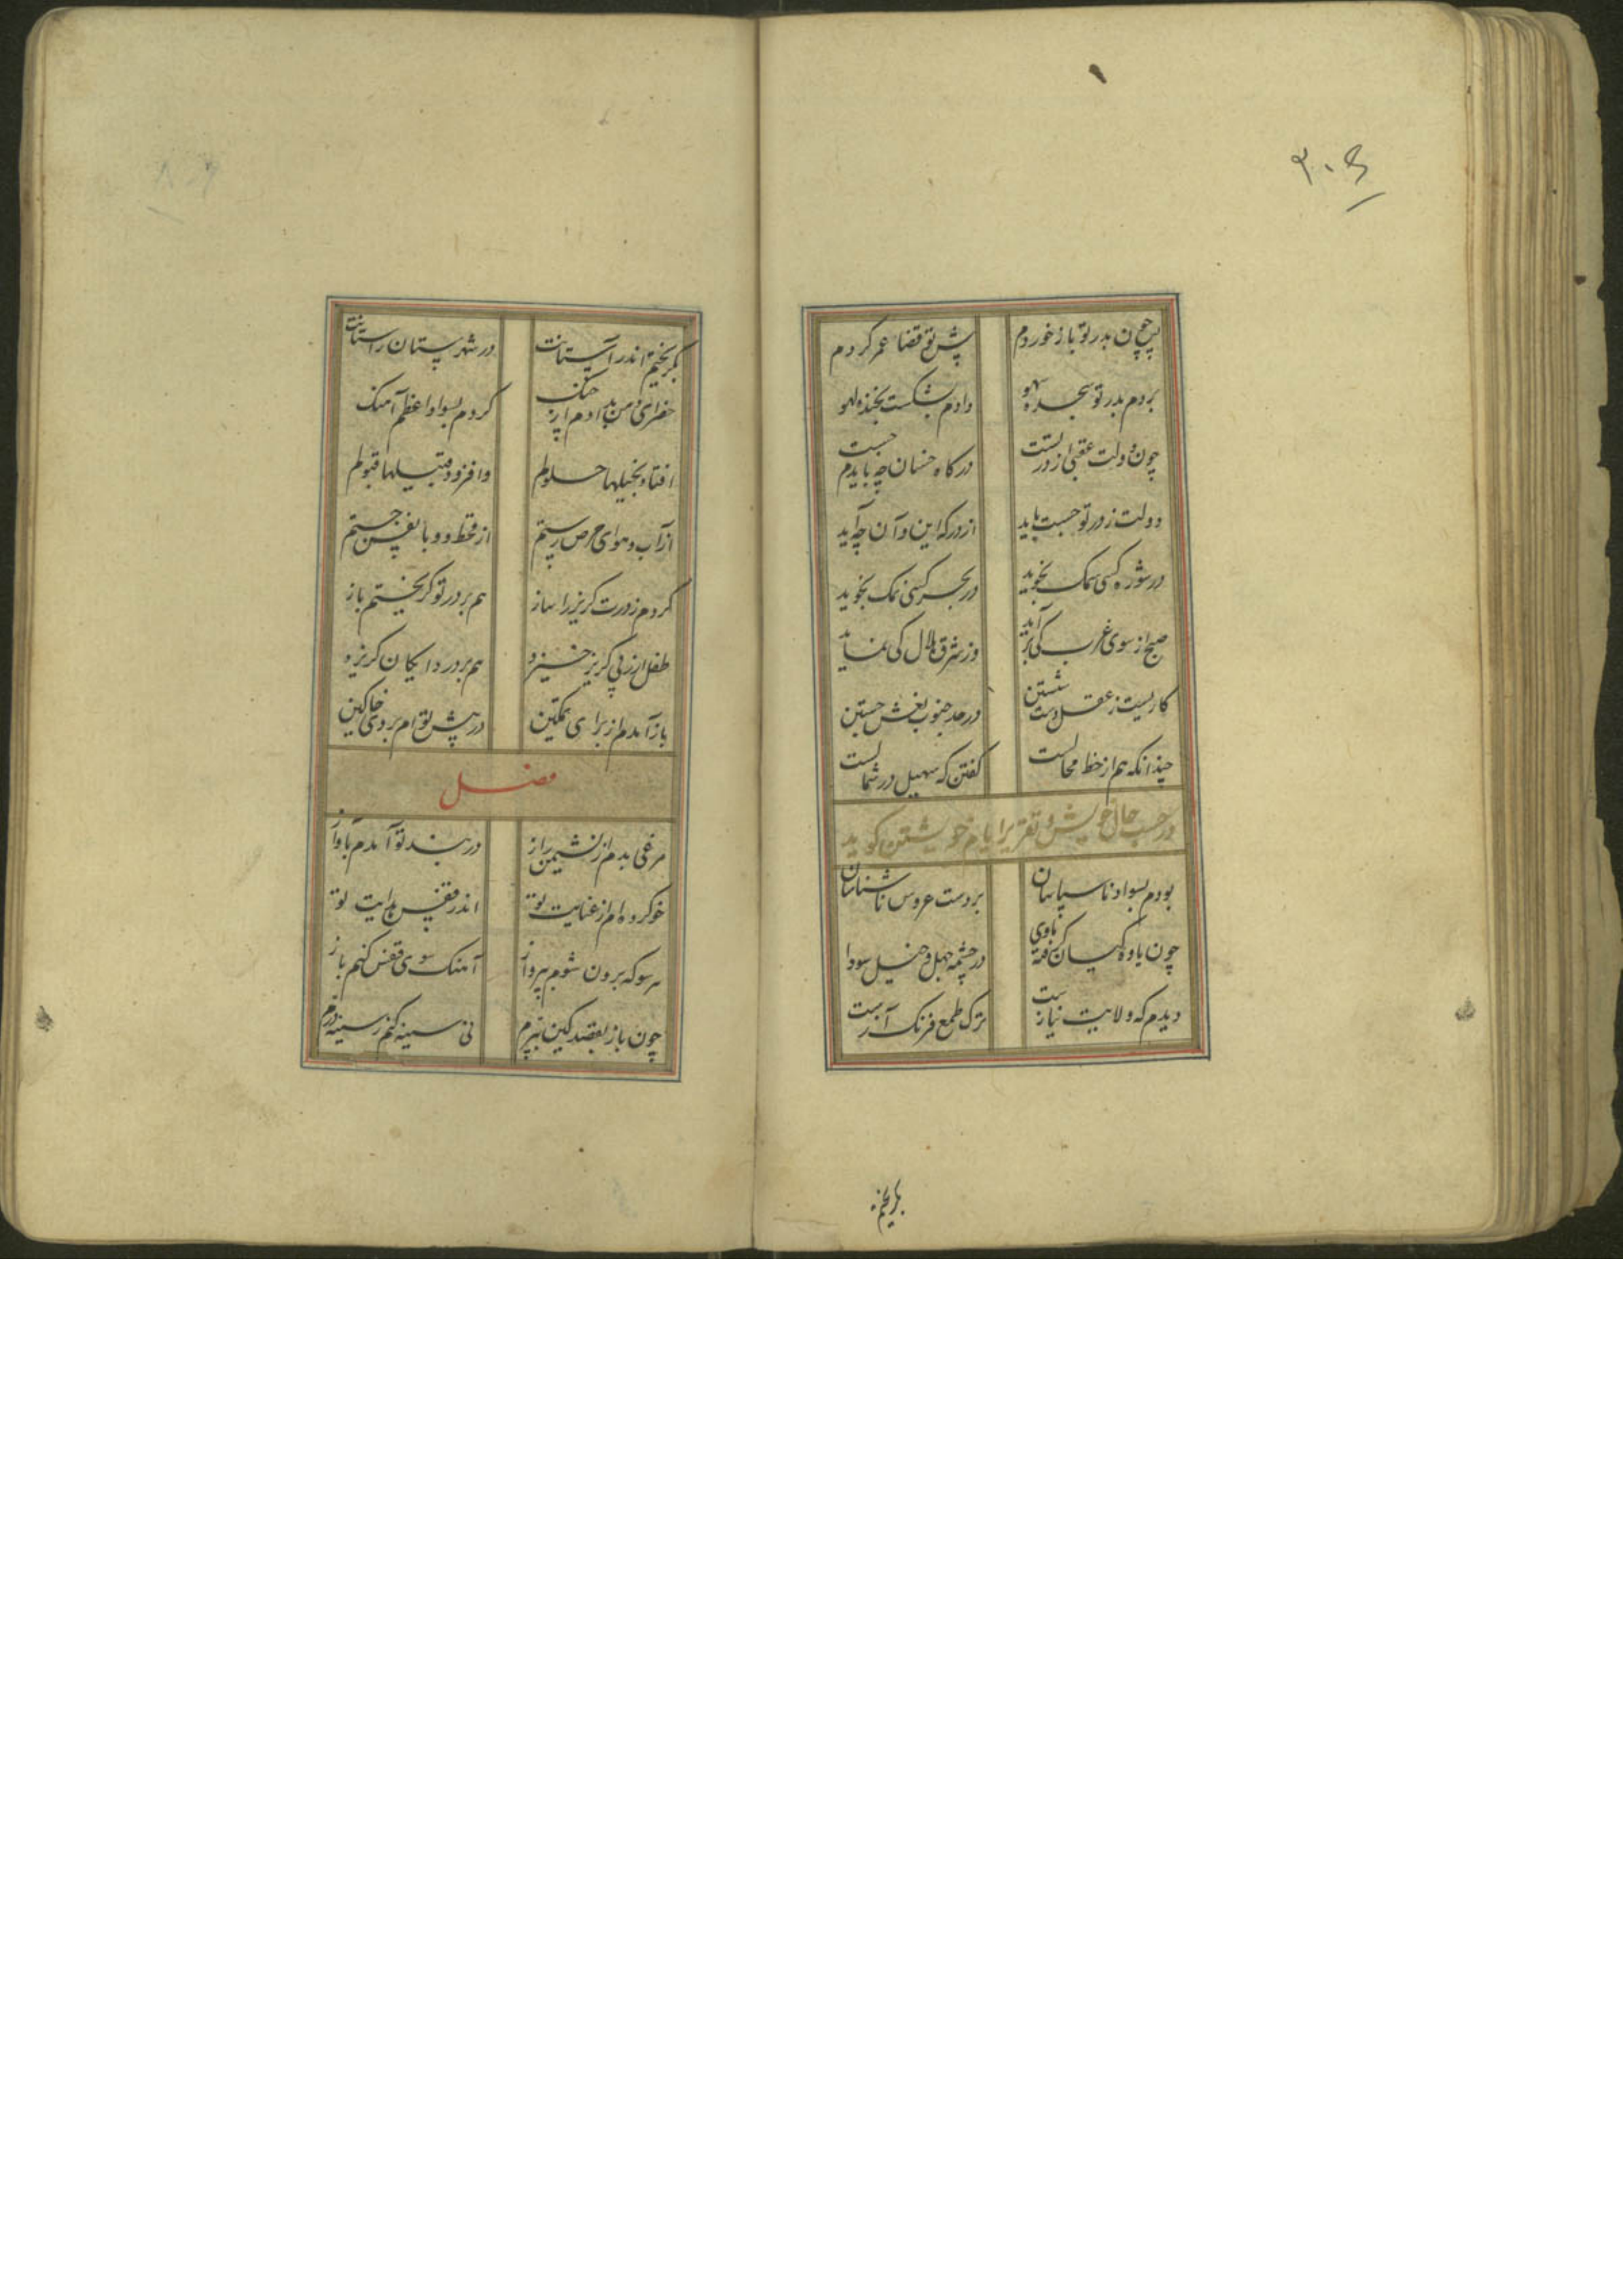 ۳۰۶
پس چون بدر تو باز خوردم
پیش تو قضا عمر کردم
بردم بدر تو سجده سهو
دادم بشکست بخنده لهو
چون دولت عقبی از درتست
درکاه خسان چه بایدم جست
دولت ز در تو جست باید
از درکه این و آن چه آید
در شوره کسی سمک نجوید
در بحر کسی نمک نجوید
صبح از سوی غرب کی برآید
وز شرق هلال کی نماید
کاریست ز عقل دست شستن
در حد جنوب نعش جستن
چندانکه هم از خط محالست
کفتن که سهیل در شمالست
در حسب حال خویش و تقریر ایام خویشتن کوید
بودم بسواد ناسپاسان
بر دست عروس ناشناسان
چون یاوه کیان کرفته یاوی
در چشمه جهل و خیل سودا
دیدم که ولایت نیازست
ترک طمع فرنک آزست
بکریختم
بکریختم اندر آستانت
در شهرستان راستانت
خضرای دمن بدادم از چنک
کردم بسواد اعظم آهنک
افتاد بخیلها حلولم
وافزود قبیلها قبولم
از آب و هوای حرص رستم
از قحط و وبا بنفس جستم
کردم ز درت کریز را ساز
هم بر در تو کریختم باز
طفل ار ز پی کریز خیزد
هم بر در دایکان کریزد
باز آمدم از برای تمکین
در پیش توام بروی خاکین
فصل
مرغی بدم از نشیمن راز
در بند تو آمدم بآواز
خو کرده ام از عنایت تو
اندر قفس هدایت تو
هر سو که برون شوم بپرواز
آهنک سوی قفس کنم باز
چون باز بقصد کین نپرم
نی سینه کنم ز سینه درم